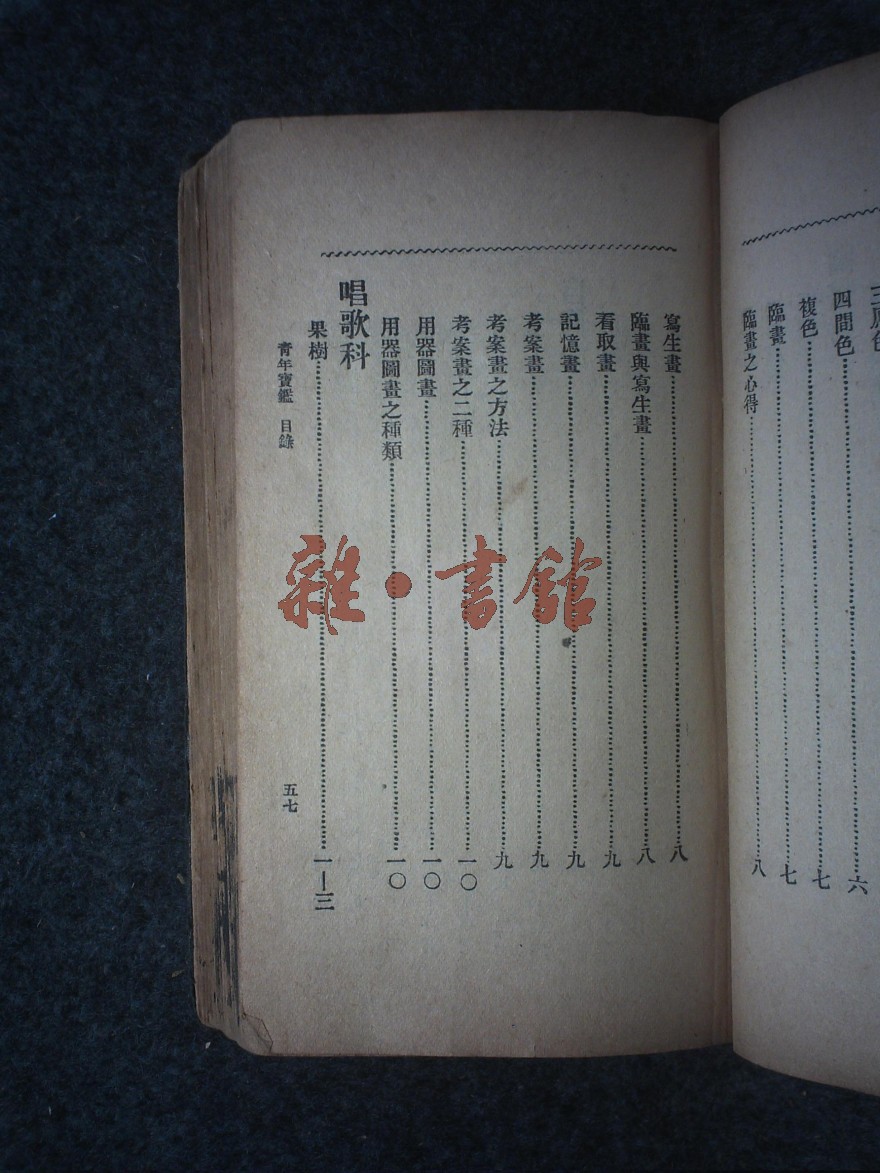 四間色……六
複色……七
臨畫……七
臨畫之心得……八
寫生畫……八
臨畫與寫生畫……八
看取畫……九
記憶畫……九
考案畫……九
考案畫之方法……九
考案畫之二種……一〇
用器圖畫……一〇
用器圖畫之種類……一〇
唱歌科
果樹……一—三
青年寶鑑 目錄
五七
雜·書館